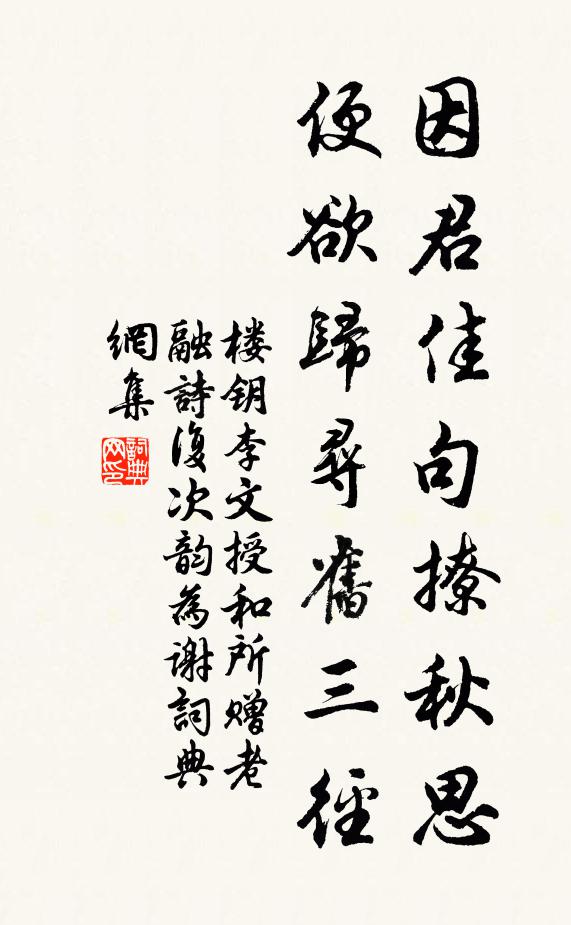 因君佳句撩秋思
便欲歸尋舊三徑
楼钥李文授和所赠老
融詩復次韵為谢詞典
網集
詞典网印